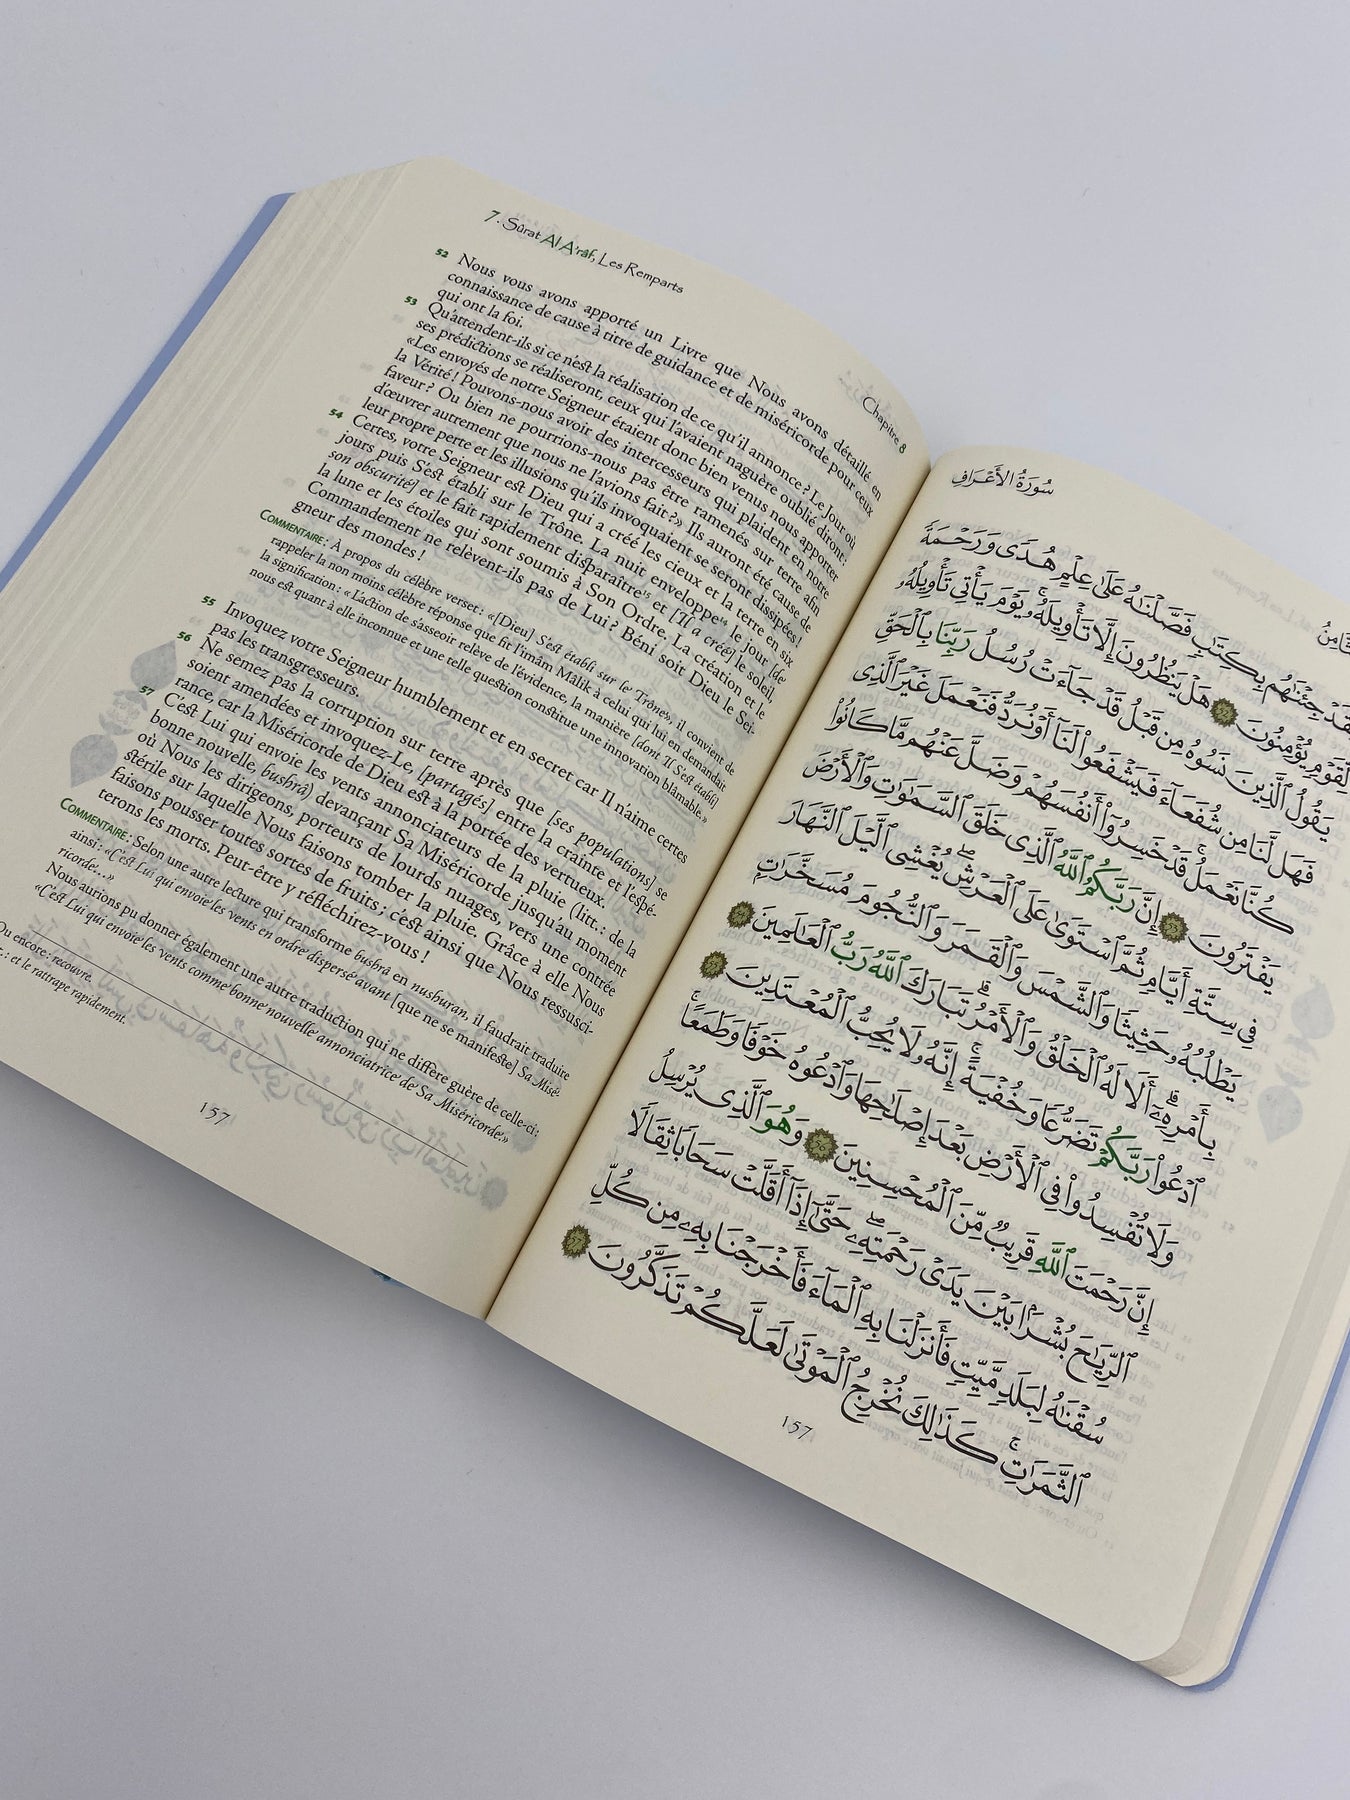 7. Sûrat Al A'râf, Les Remparts
Chapitre 8
52 Nous vous avons apporté un Livre que Nous avons détaillé en
connaissance de cause à titre de guidance et de miséricorde pour ceux
qui ont la foi.
53 Qu'attendent-ils si ce n'est la réalisation de ce qu'il annonce? Le Jour où
ses prédictions se réaliseront, ceux qui l'avaient naguère oublié diront:
«Les envoyés de notre Seigneur étaient donc bien venus nous apporter
la Vérité! Pouvons-nous avoir des intercesseurs qui plaident en notre
faveur? Ou bien ne pourrions-nous pas être ramenés sur terre afin
d'œuvrer autrement que nous ne l'avions fait?» Ils auront été cause de
leur propre perte et les illusions qu'ils invoquaient se seront dissipées!
54 Certes, votre Seigneur est Dieu qui a créé les cieux et la terre en six
jours puis S'est établi sur le Trône. La nuit enveloppe¹⁴ le jour [de
son obscurité] et le fait rapidement disparaître¹⁵ et [Il a créé] le soleil,
la lune et les étoiles qui sont soumis à Son Ordre. La création et le
Commandement ne relèvent-ils pas de Lui? Béni soit Dieu le Sei-
gneur des mondes!
COMMENTAIRE: À propos du célèbre verset: «[Dieu] S'est établi sur le Trône», il convient de
rappeler la non moins célèbre réponse que fit l'imâm Mâlik à celui qui lui en demandait
la signification: «L'action de s'asseoir relève de l'évidence, la manière [dont Il S'est établi]
nous est quant à elle inconnue et une telle question constitue une innovation blâmable.»
55 Invoquez votre Seigneur humblement et en secret car Il n'aime certes
pas les transgresseurs.
56 Ne semez pas la corruption sur terre après que [ses populations] se
soient amendées et invoquez-Le, [partagés] entre la crainte et l'espé-
rance, car la Miséricorde de Dieu est à la portée des vertueux.
57 C'est Lui qui envoie les vents annonciateurs de la pluie (litt.: de la
bonne nouvelle, bushrâ) devançant Sa Miséricorde jusqu'au moment
où Nous les dirigeons, porteurs de lourds nuages, vers une contrée
stérile sur laquelle Nous faisons tomber la pluie. Grâce à elle Nous
faisons pousser toutes sortes de fruits; c'est ainsi que Nous ressusci-
terons les morts. Peut-être y réfléchirez-vous!
COMMENTAIRE: Selon une autre lecture qui transforme bushrâ en nushuran, il faudrait traduire
ainsi: «C'est Lui qui envoie les vents en ordre dispersé avant [que ne se manifeste] Sa Misé-
ricorde...»
Nous aurions pu donner également une autre traduction qui ne diffère guère de celle-ci:
«C'est Lui qui envoie les vents comme bonne nouvelle annonciatrice de Sa Miséricorde.»
Ou encore: recouvre.
.: et le rattrape rapidement.
157
سُورَةُ الأَعْرَافِ
جِئْنَٰهُم بِكِتَٰبٍ فَصَّلْنَٰهُ عَلَىٰ عِلْمٍ هُدًى وَرَحْمَةً
لِّقَوْمٍ يُؤْمِنُونَ ٥٢ هَلْ يَنظُرُونَ إِلَّا تَأْوِيلَهُۥ ۚ يَوْمَ يَأْتِى تَأْوِيلُهُۥ
يَقُولُ ٱلَّذِينَ نَسُوهُ مِن قَبْلُ قَدْ جَآءَتْ رُسُلُ رَبِّنَا بِٱلْحَقِّ
فَهَل لَّنَا مِن شُفَعَآءَ فَيَشْفَعُوا۟ لَنَآ أَوْ نُرَدُّ فَنَعْمَلَ غَيْرَ ٱلَّذِى
كُنَّا نَعْمَلُ ۚ قَدْ خَسِرُوٓا۟ أَنفُسَهُمْ وَضَلَّ عَنْهُم مَّا كَانُوا۟
يَفْتَرُونَ ٥٣ إِنَّ رَبَّكُمُ ٱللَّهُ ٱلَّذِى خَلَقَ ٱلسَّمَٰوَٰتِ وَٱلْأَرْضَ
فِى سِتَّةِ أَيَّامٍ ثُمَّ ٱسْتَوَىٰ عَلَى ٱلْعَرْشِ ۖ يُغْشِى ٱلَّيْلَ ٱلنَّهَارَ
يَطْلُبُهُۥ حَثِيثًا وَٱلشَّمْسَ وَٱلْقَمَرَ وَٱلنُّجُومَ مُسَخَّرَٰتٍۭ
بِأَمْرِهِۦٓ ۗ أَلَا لَهُ ٱلْخَلْقُ وَٱلْأَمْرُ ۗ تَبَارَكَ ٱللَّهُ رَبُّ ٱلْعَٰلَمِينَ ٥٤
ٱدْعُوا۟ رَبَّكُمْ تَضَرُّعًا وَخُفْيَةً ۚ إِنَّهُۥ لَا يُحِبُّ ٱلْمُعْتَدِينَ ٥٥
وَلَا تُفْسِدُوا۟ فِى ٱلْأَرْضِ بَعْدَ إِصْلَٰحِهَا وَٱدْعُوهُ خَوْفًا وَطَمَعًا ۚ
إِنَّ رَحْمَتَ ٱللَّهِ قَرِيبٌ مِّنَ ٱلْمُحْسِنِينَ ٥٦ وَهُوَ ٱلَّذِى يُرْسِلُ
ٱلرِّيَٰحَ بُشْرًۢا بَيْنَ يَدَىْ رَحْمَتِهِۦ ۖ حَتَّىٰٓ إِذَآ أَقَلَّتْ سَحَابًا ثِقَالًا
سُقْنَٰهُ لِبَلَدٍ مَّيِّتٍ فَأَنزَلْنَا بِهِ ٱلْمَآءَ فَأَخْرَجْنَا بِهِۦ مِن كُلِّ
ٱلثَّمَرَٰتِ ۚ كَذَٰلِكَ نُخْرِجُ ٱلْمَوْتَىٰ لَعَلَّكُمْ تَذَكَّرُونَ ٥٧
157